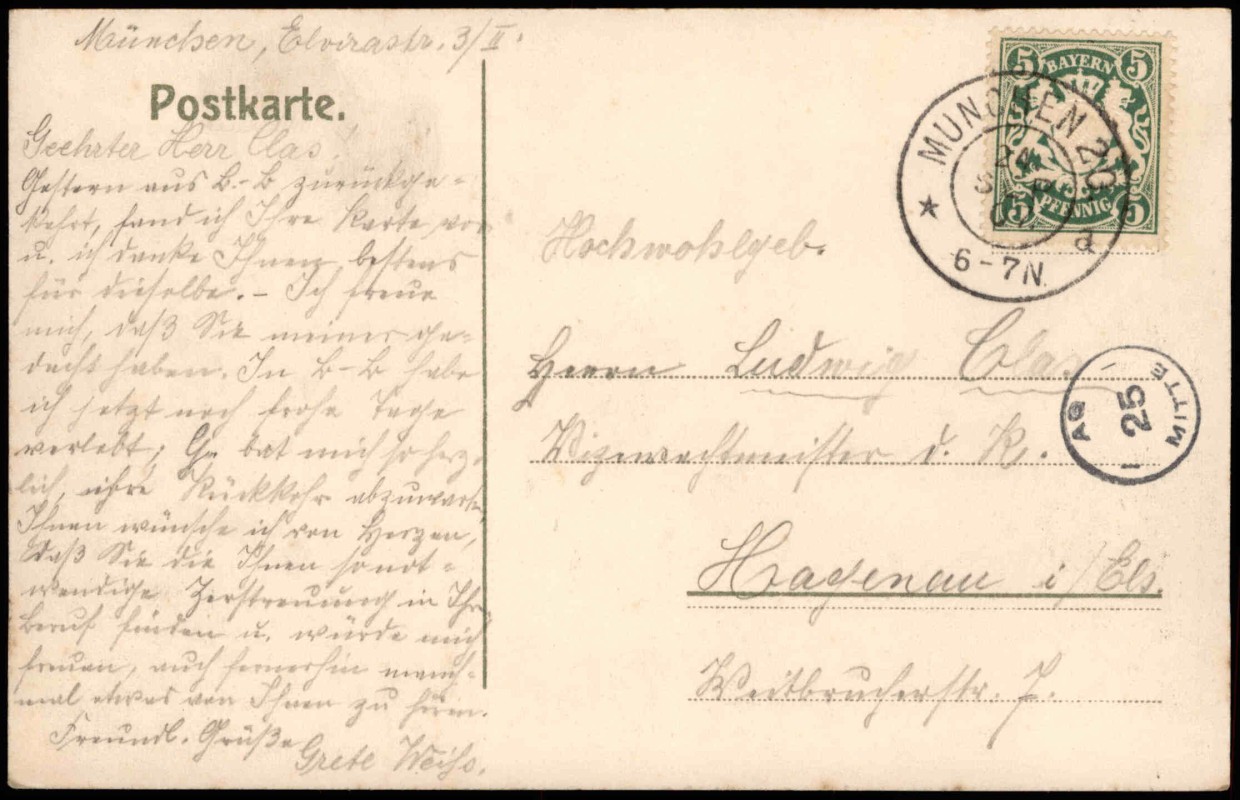 München, Elvirastr. 3/II.
Postkarte.
Geehrter Herr Clas!
Gestern aus B.-B zurückge-
kehrt, fand ich Ihre Karte vor
u. ich danke Ihnen bestens
für dieselbe. - Ich freue
mich, daß Sie meiner ge-
dacht haben. In B-B habe
ich jetzt noch frohe Tage
verlebt; bat mich so herz-
lich, ihre Rückkehr abzuwarten,
Ihnen wünsche ich von Herzen,
daß Sie die Ihnen so not-
wendige Zerstreuung in Ihr
Beruf finden u. würde mich
freuen, auch fernerhin manch-
mal etwas von Ihnen zu hören.
Freundl. Grüße
Grete Weihs.
5 BAYERN 5
5 PFENNIG 5
MÜNCHEN 20 a
24
SEP
07
6-7N.
Hochwohlgeb.
Herrn Ludwig Clas
Vizewachtmeister d. R.
Hagenau i/Els.
Weitbrucherstr. 7.
AG
25
MITTE